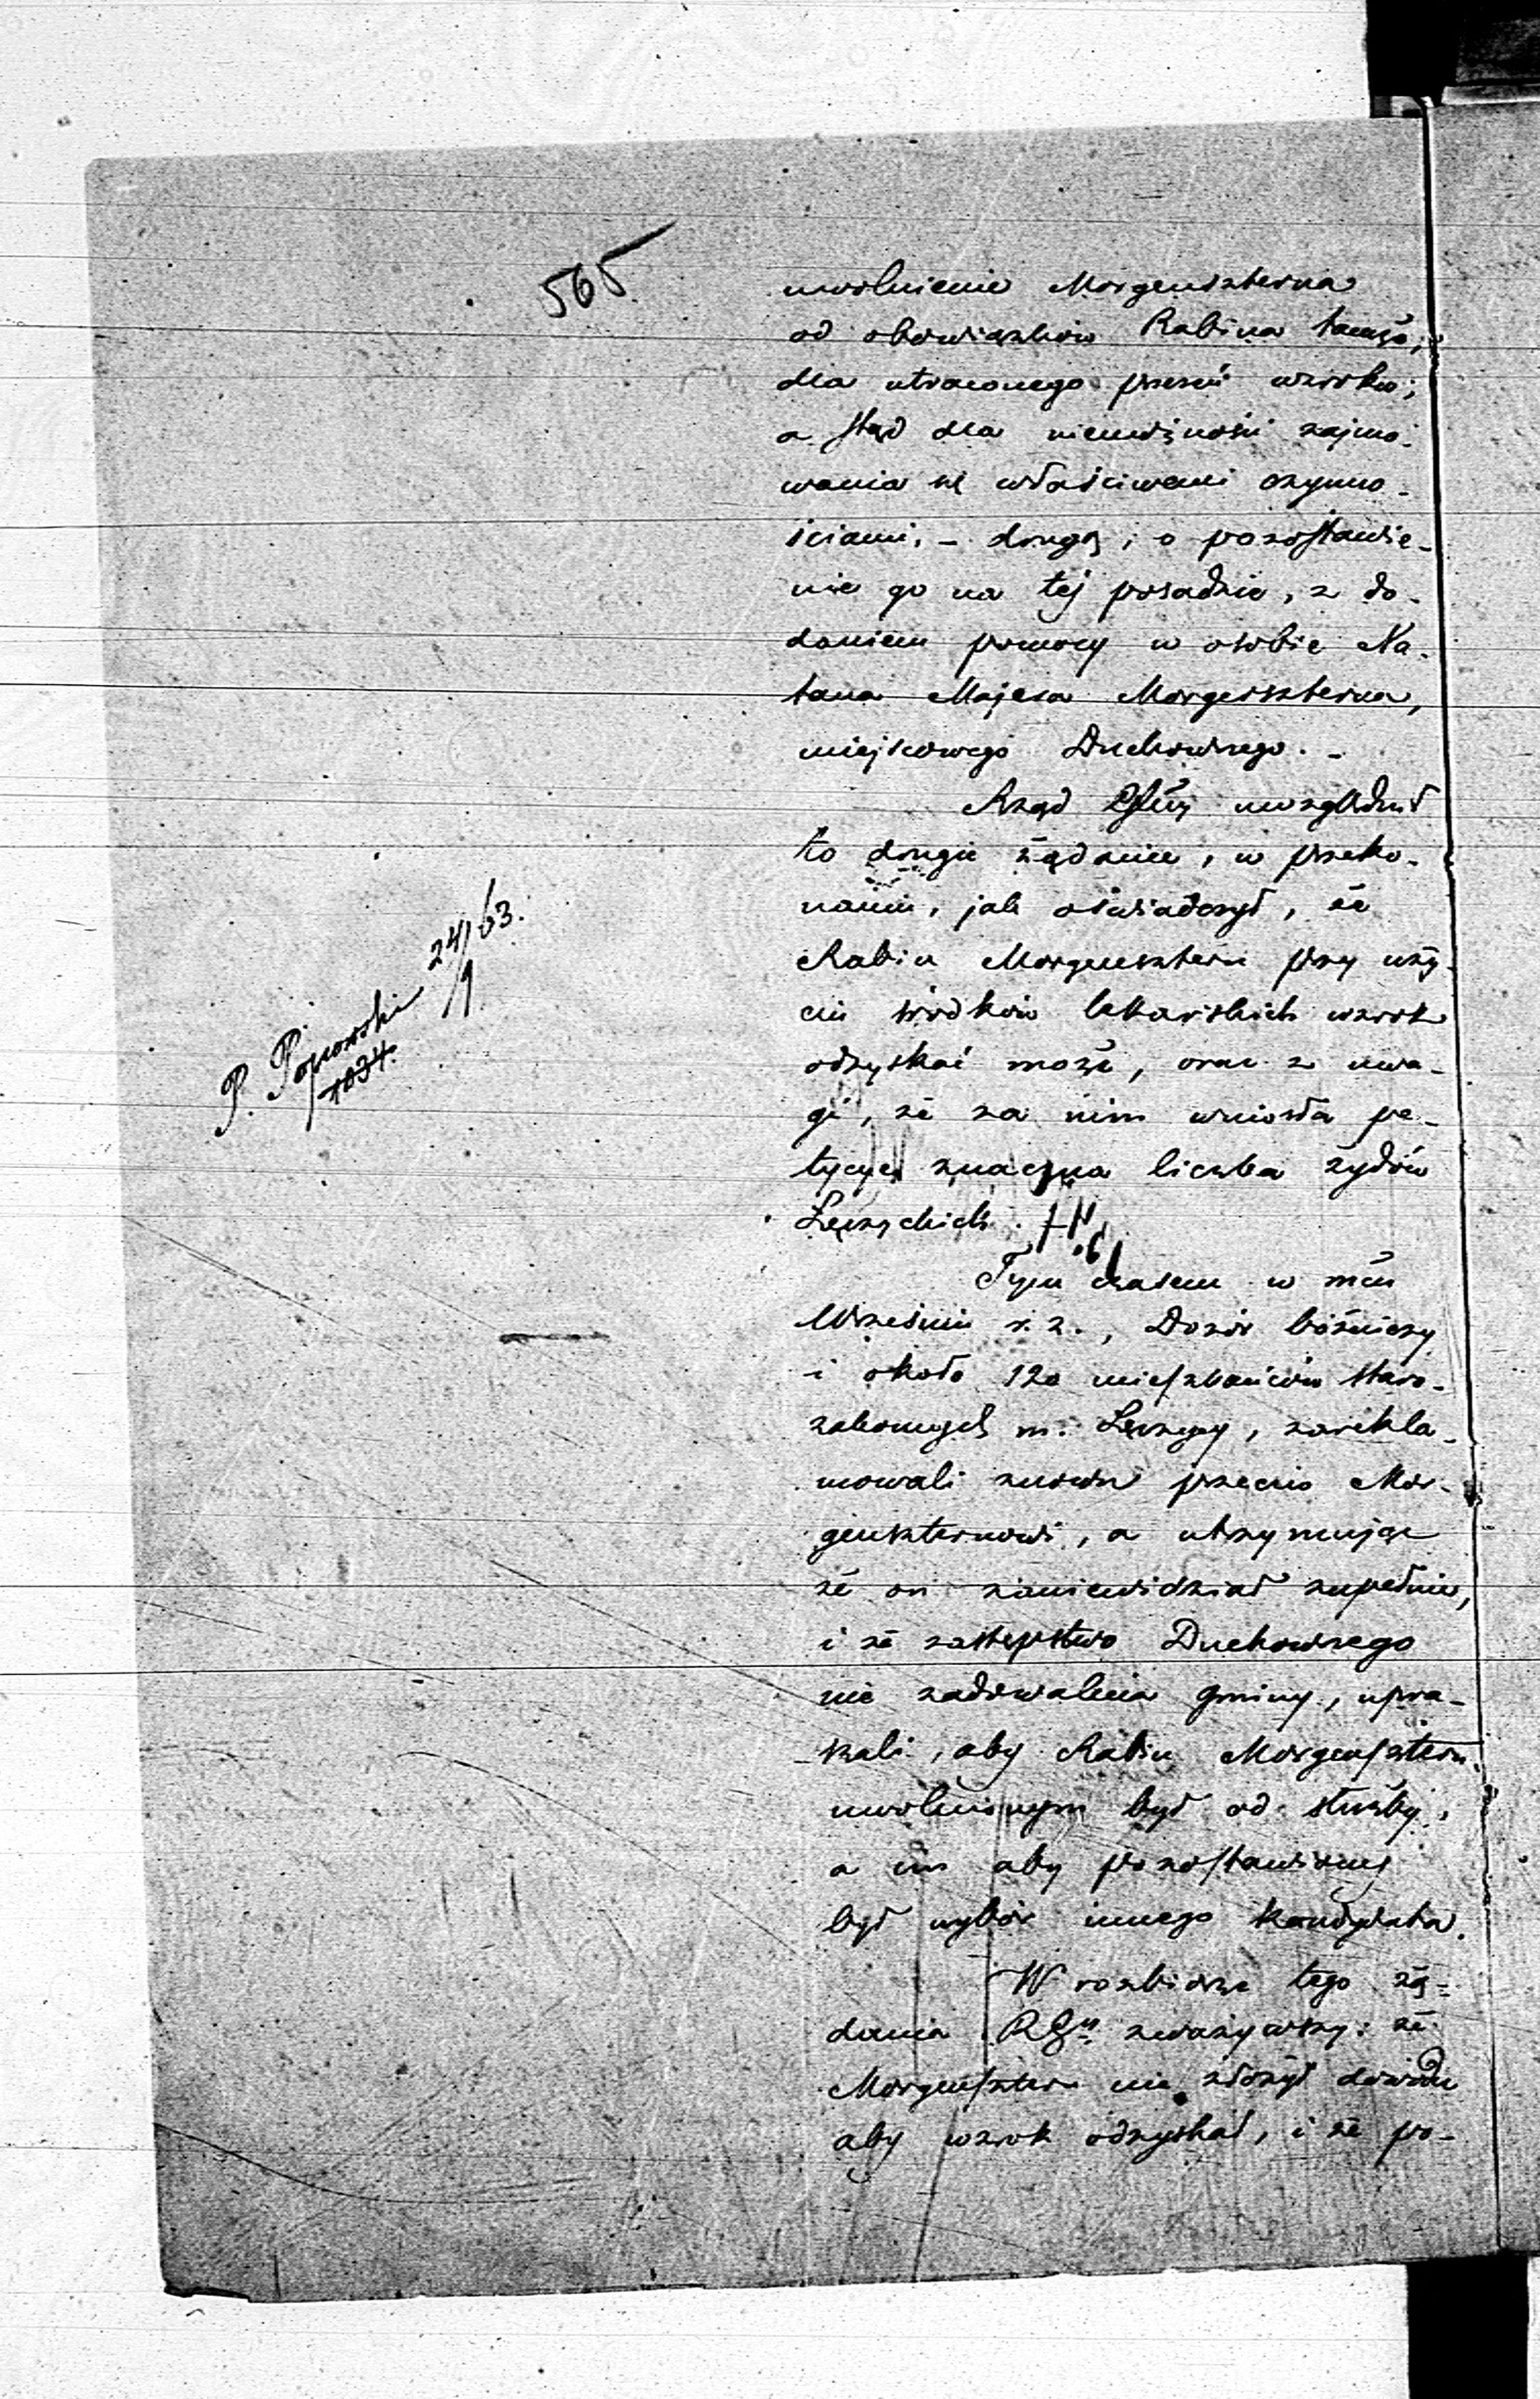 565
uwolnienie Morgensterna
od obowiązków Rabina tamże,
dla utraconego przezeń wzroku;
a stąd dla niemożności zajmo-
wania się właściwemi czynno-
ściami, - drugą, o pozostawie-
nie go na tej posadzie, z do-
daniem pomocy w osobie Na-
tana Majera Morgenszterna,
miejscowego Duchownego. -
Rząd Głny uwzględnił
to drugie żądanie, w przeko-
naniu, jak oświadczył, że
Rabin Morgensztern przy uży-
ciu środków lekarskich wzrok
odzyskać może, oraz z uwa-
gi, że za nim wniosła pe-
tycye znaczna liczba żydów
Łęczyckich.
Tym czasem w mcu
Wrześniu r. z., Dozór bóżniczy
i około 120 mieszkańców staro-
zakonnych m. Łęczycy, zarekla-
mowali znowu przeciw Mor-
genszternowi, a utrzymując
że on zaniewidział zupełnie,
i że zastępstwo Duchownego
nie zadowalnia gminy, upra-
szali, aby Rabin Morgensztern
uwolnionym był od służby,
a im aby pozostawiony
był wybór innego kandydata.
W rozbiorze tego żą-
dania RGny zważywszy: że
Morgensztern nie złożył dowodu
aby wzrok odzyskał, i że po-
P. Popowski 24/9 63.